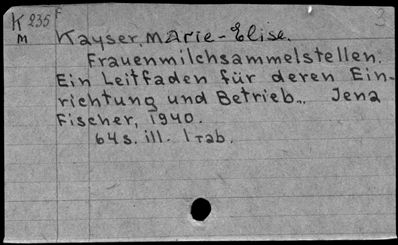 K 235 F 3
M Kayser, Marie-Elise.
Frauenmilchsammelstellen.
Ein Leitfaden für deren Ein-
richtung und Betrieb.. Jena
Fischer, 1940.
64 s. ill. 1 tab.